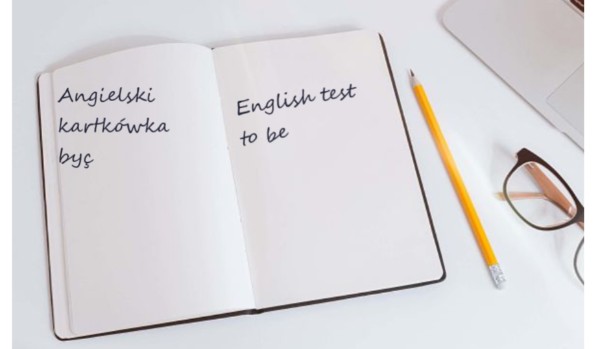 Angielski
kartkówka
byç
English test
to be